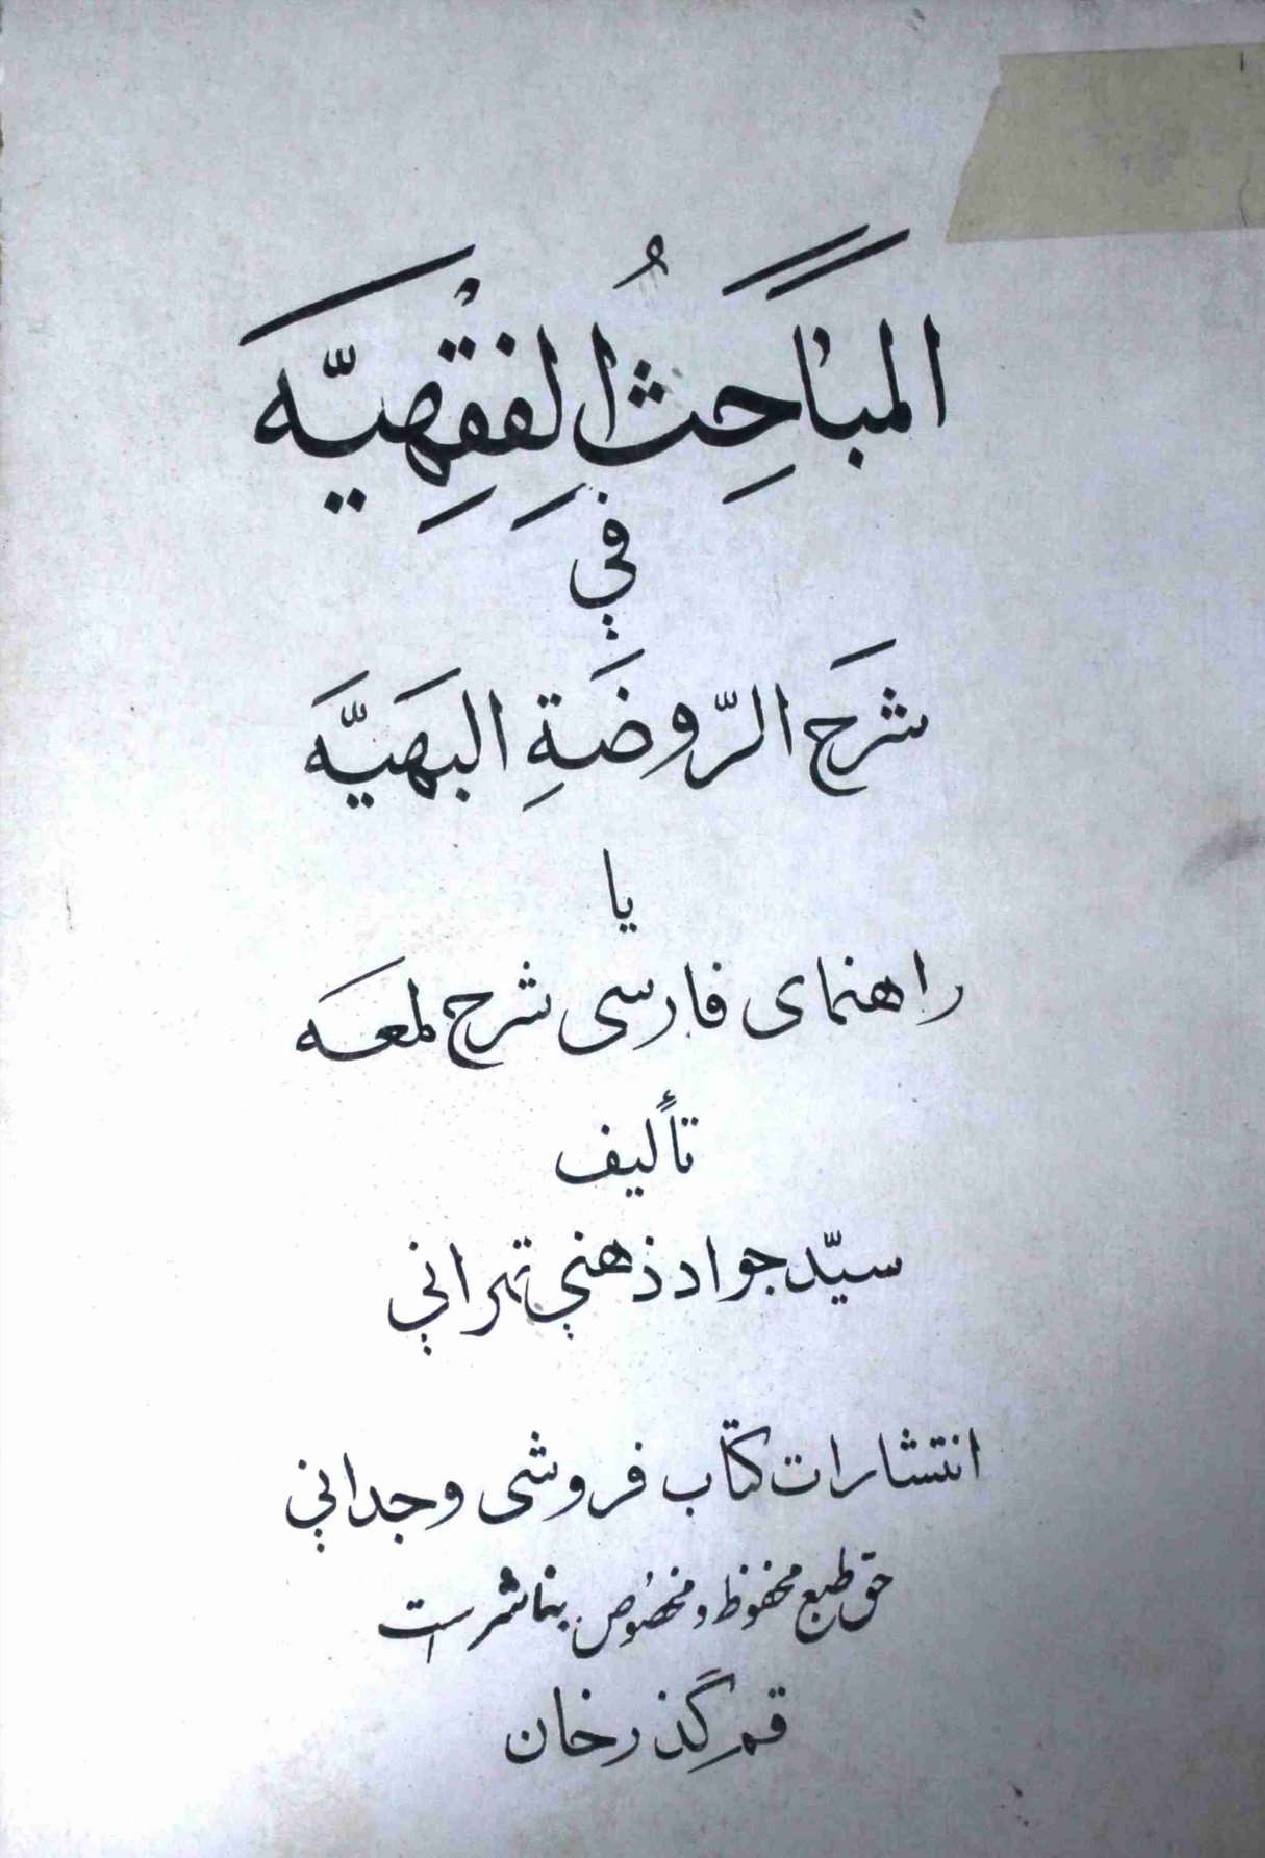 المَبٰاحِثُ الفِقْهِيَّه
في
شَرح الرّوضَةِ البَهيَّه
یا
راهنمای فارسی شرح لمعه
تألیف
سیّد جواد ذهني تهراني
انتشارات کتاب فروشی وجداني
حق طبع محفوظ و مخصوص بناشر است
قم گذرخان